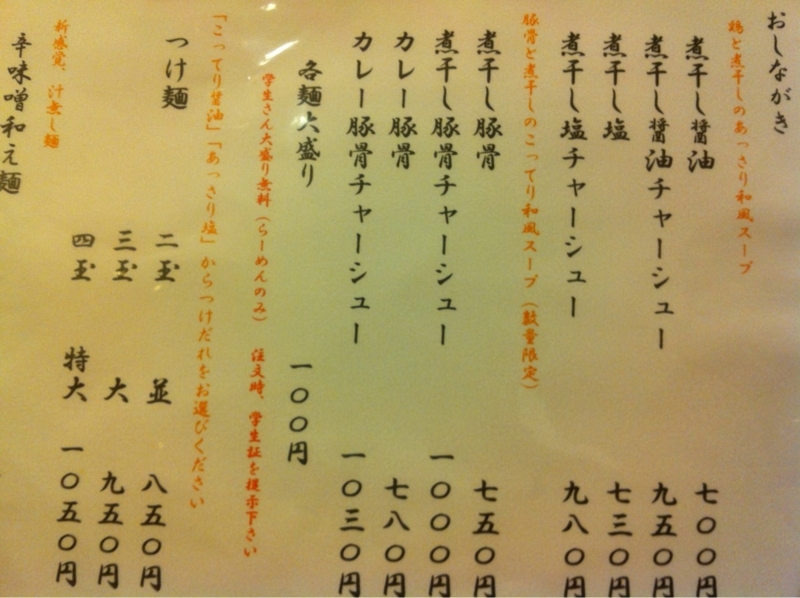 おしながき
鶏と煮干しのあっさり和風スープ
煮干し醤油 七〇〇円
煮干し醤油チャーシュー 九五〇円
煮干し塩 七三〇円
煮干し塩チャーシュー 九八〇円
豚骨と煮干しのこってり和風スープ（数量限定）
煮干し豚骨 七五〇円
煮干し豚骨チャーシュー 一〇〇〇円
カレー豚骨 七八〇円
カレー豚骨チャーシュー 一〇三〇円
各麺大盛り 一〇〇円
学生さん大盛り無料（らーめんのみ） 注文時、学生証を提示下さい
「こってり醤油」「あっさり塩」からつけだれをお選びください
つけ麺 二玉 並 八五〇円
三玉 大 九五〇円
四玉 特大 一〇五〇円
新感覚、汁無し麺
辛味噌和え麺